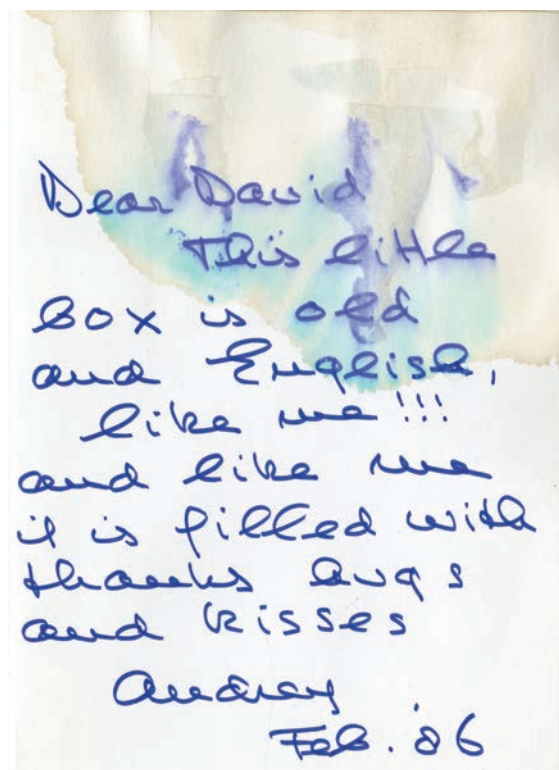 Dear David
This little
box is old
and English,
like me!!!
and like me
it is filled with
thanks hugs
and kisses
Audrey
Feb. '86